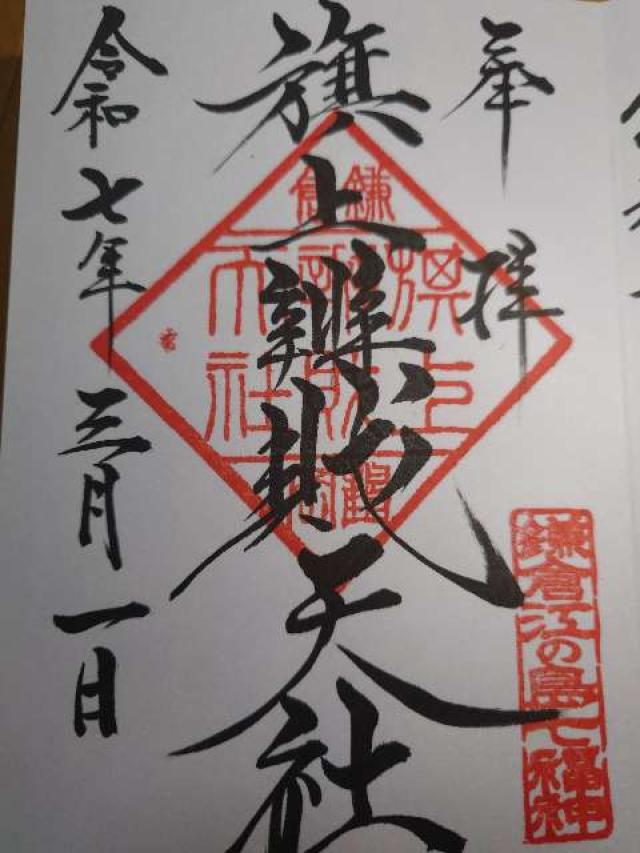 奉拝
旗上辨財天社
令和七年三月一日
鎌倉
旗上
辨財
天社
鶴岡
鎌倉江の島七福神